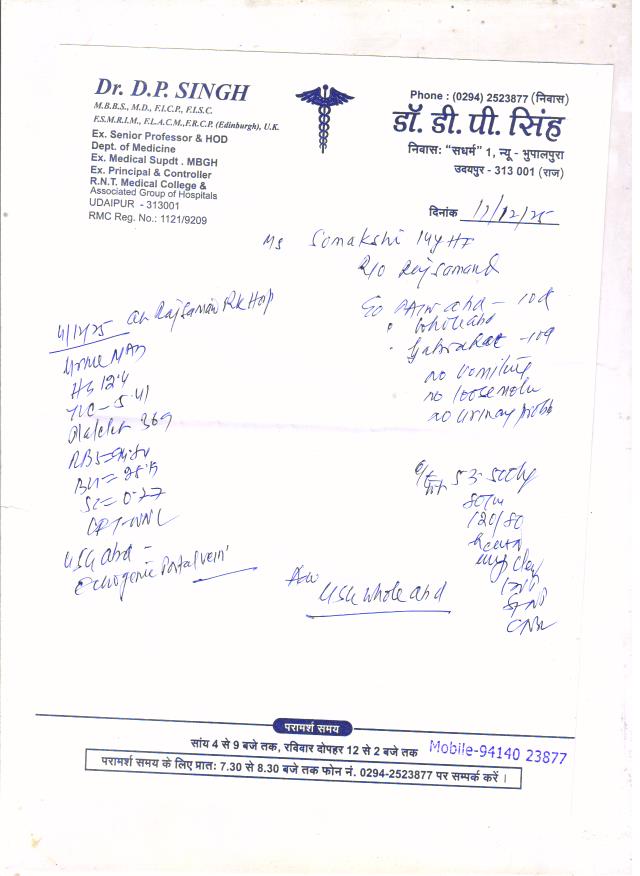 Dr. D.P. SINGH
M.B.B.S., M.D., F.I.C.P., F.I.S.C.
F.S.M.R.I.M., F.L.A.C.M.,F.R.C.P. (Edinburgh), U.K.
Ex. Senior Professor & HOD
Dept. of Medicine
Ex. Medical Supdt . MBGH
Ex. Principal & Controller
R.N.T. Medical College &
Associated Group of Hospitals
UDAIPUR - 313001
RMC Reg. No.: 1121/9209
Phone : (0294) 2523877 (निवास)
डॉ. डी. पी. सिंह
निवासः "सधर्म" 1, न्यू - भुपालपुरा
उदयपुर - 313 001 (राज)
दिनांक 11/12/25
Ms Somakshi 14y
R/o Rajsamand
abd - 10d
whole abd
Gabrahat - 10d
no vomiting
no loose
no urinary
4/12/25 Rajsamand RK Hosp
Urine
Hb 12.4
TLC - 5.41
Platelet 369
RBS =
BU = 28.5
SC = 0.77
LFT - WNL
USG abd -
Echogenic Portal vein
53.500kg
80/m
120/80
Adv
USG whole abd
परामर्श समय
सांय 4 से 9 बजे तक, रविवार दोपहर 12 से 2 बजे तक
Mobile-94140 23877
परामर्श समय के लिए प्रातः 7.30 से 8.30 बजे तक फोन नं. 0294-2523877 पर सम्पर्क करें ।